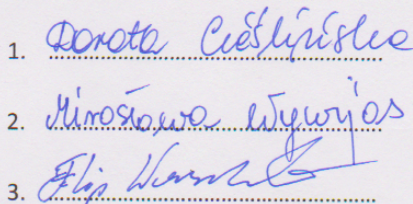 1. Dorota Cieślińska
2. Mirosława Wywijas
3. Filip